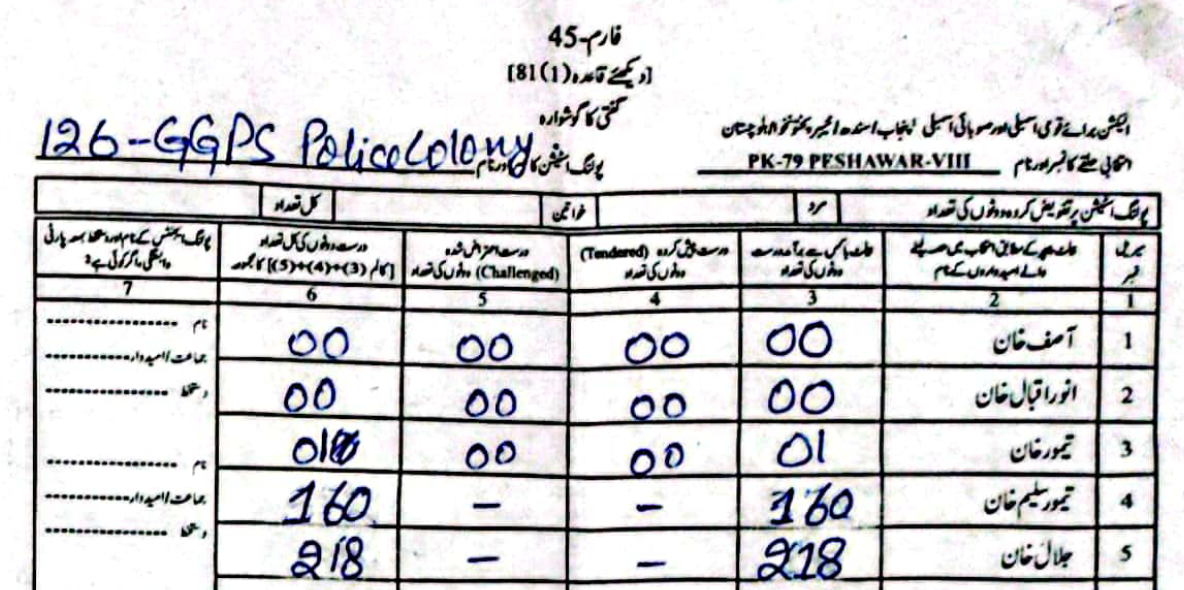 فارم-45
[دیکھئے قاعدہ (1)81]
گنتی کا گوشوارہ
الیکشن برائے قومی اسمبلی اور صوبائی اسمبلی پنجاب / سندھ / خیبر پختونخوا / بلوچستان
انتخابی حلقے کا نمبر اور نام PK-79 PESHAWAR-VIII
پولنگ اسٹیشن کا نمبر اور نام 126-GGPS Police Colony
پولنگ اسٹیشن پر تفویض کردہ ووٹوں کی تعداد مرد خواتین کل تعداد
سیریل نمبر
والے امیدواروں کے نام
ووٹوں کی تعداد
درست پیش کردہ (Tendered) ووٹوں کی تعداد
درست اعتراض شدہ (Challenged) ووٹوں کی تعداد
درست ووٹوں کی کل تعداد [کالم (3)+(4)+(5) کا مجموعہ]
پولنگ ایجنٹس کے نام اور دستخط بمعہ پارٹی وابستگی، اگر کوئی ہے؟
1 2 3 4 5 6 7
1 آصف خان 00 00 00 00
2 انور اقبال خان 00 00 00 00
3 تیمور خان 01 00 00 01
4 تیمور سلیم خان 160 - - 160
5 جلال خان 218 - - 218
نام ..................
جماعت / امیدوار ..................
دستخط ..................
نام ..................
جماعت / امیدوار ..................
دستخط ..................